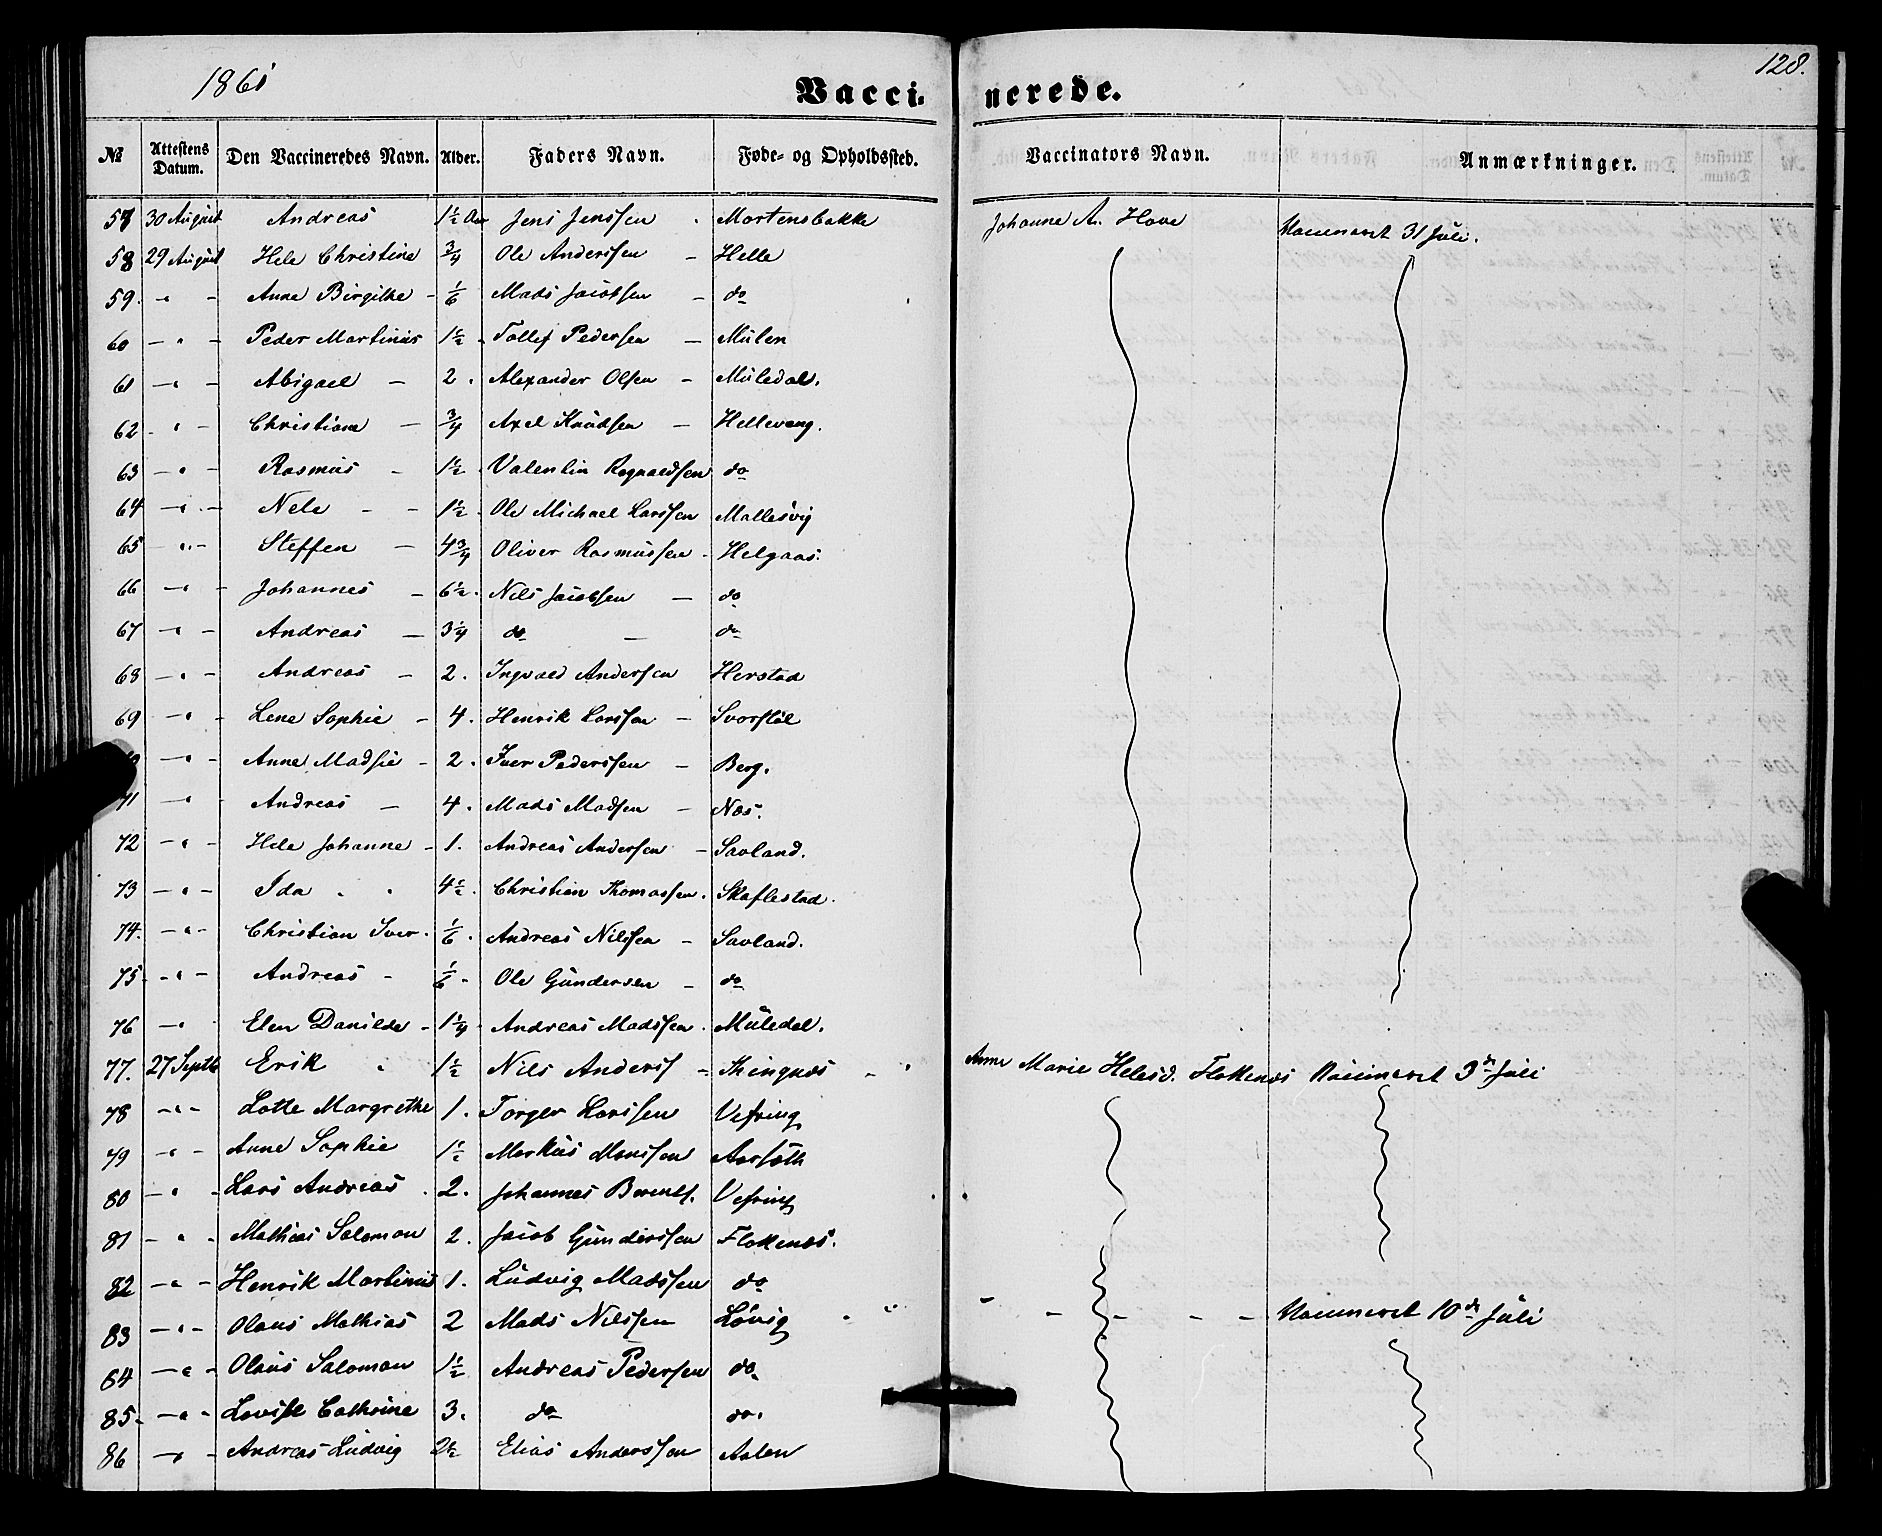 1861 Vaccinerede. 128.
№ Attestens Datum. Den Vaccineredes Navn. Alder. Faders Navn. Føde- og Opholdssted. Vaccinators Navn. Anmærkninger.
57 30 August Andreas 1½ Jens Jenssen Mortensbakke Johanne A. Hove Vaccineret 31 Juli.
58 29 August Hele Christine ¾ Ole Anderssen - Helle
59. " - Anne Birgithe - 1/6 Mads Jacobsen - do
60 - " - Peder Martinus 1½ - Tollef Pedersen - Mulen
61 - " - Abigael - 2. Alexander Olsen - Muledal.
62 - " - Christiane - ¾ Axel Knudsen - Hellevang.
63 - " - Rasmus - 1½. Valentin Ragnvaldsen do
64 - " - Nele - - 1½. Ole Michael Larssen Mallesvig
65 - " - Steffen - 4¾ Oliver Rasmussen - Helgaas.
66 - " - Johannes - 6½. Nils Jacobsen - do
67 - " - Andreas - 3¼ do - do
68 - " - Andreas - 2. Ingvald Andersen Herstad
69 - " - Lene Sophie - 4. Henrik Larssen - Svorstøl
- " - Anne Madsie - 2. Iver Pederssen - Berg.
71 - " - Andreas - 4. Mads Madsen - Næs.
72 - " - Hele Johanne - 1. Andreas Andersen - Savland.
73 - " - Ida " " 4½. Christian Thomassen. Skaflestad.
74. - " - Christian Iver. 1/6. Andreas Nilssen - Savland.
75. - " - Andreas - 1/6 - Ole Gundersen - do
76 - " Elen Danilde - 1¼. Andreas Madssen. Muledal.
77. 27 Septb Erik " 1½ Nils Anderss - Kingnæs - " Anne Marie Helesd. Flokenæs Vaccineret 3de Juli
78 - " - Lotte Margrethe 1. Torger Larssen Vefring
79 - " - Anne Sophie 1½ Markus Monssen
80 - " - Lars Andreas. 2. Johannes Berents. Vefring
81 - " - Mathias Salomon 2. Jacob Gunderssen Flokenæs.
82 - " - Henrik Martinus 1. Ludvig Madssen do
83 - " - Olaus Mathias 2 Mads Nilssen Løvig " " - - - - - Vaccineret 10de Juli
84 - " - Olaus Salomon 1½ Andreas Pedersen do.
85. - " - Lovise Cathrine 3. do do.
86 - " - Andreas Ludvig 2½ Elias Anderssen Aalen